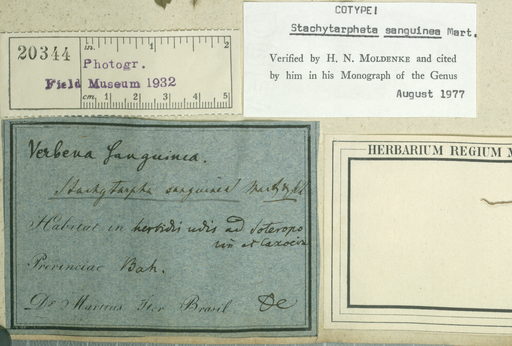 COTYPE!
Stachytarpheta sanguinea Mart.
Verified by H. N. MOLDENKE and cited
by him in his Monograph of the Genus
August 1977
20344
in. 1 2
Photogr.
Field Museum 1932
cm. 1 2 3 4 5
Verbena sanguinea.
Stachytarpha sanguinea
Habitat in herbidis udis ad Soteropo
Provinciae Bah.
Dr. Martius Iter Brasil
HERBARIUM REGIUM M